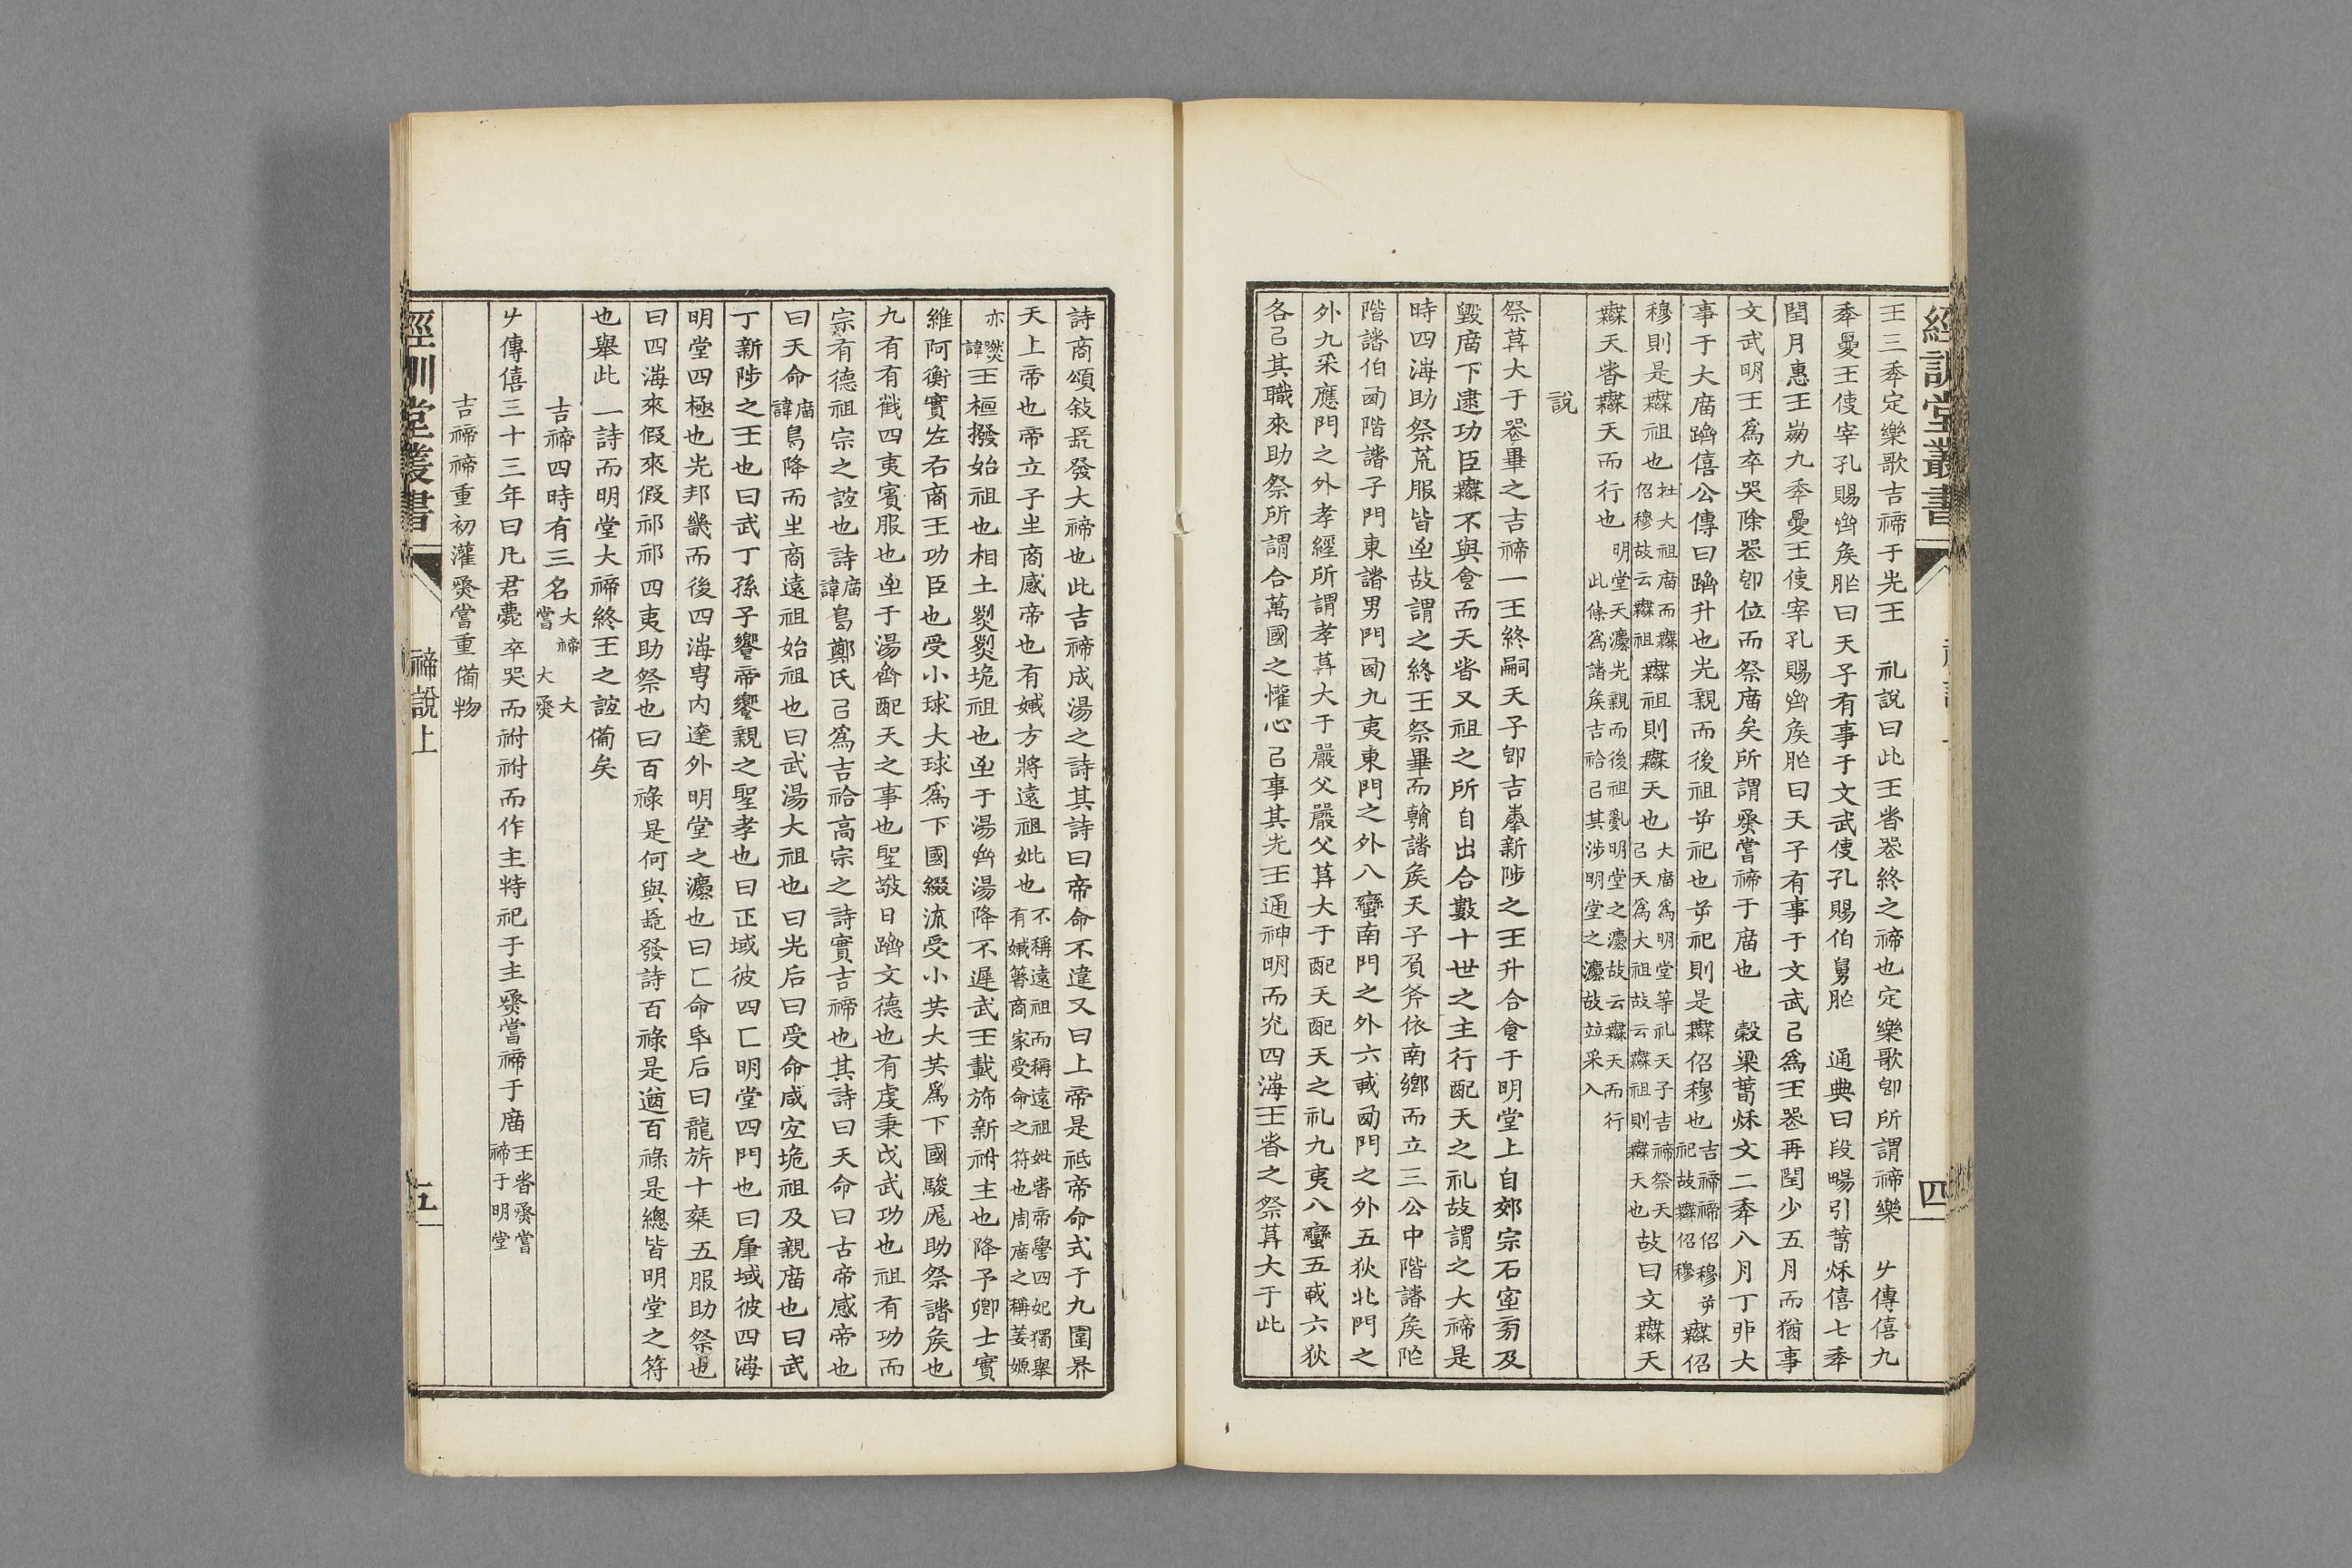 經訓堂叢書
四
王三秊定樂歌吉禘于先王　礼說曰此王者器終之禘也定樂歌卽所謂禘樂　𠂇傳僖九
秊憂王使宰孔賜齊矦胙曰天子有事于文武使孔賜伯舅胙　通典曰段暢引萅秌僖七秊
閏月惠王崩九秊憂王使宰孔賜齊矦胙曰天子有事于文武㠯爲王喪再閏少五月而猶事
文武明王爲卒哭除喪卽位而祭廟矣所謂烝嘗禘于廟也　穀梁萅秌文二秊八月丁卯大
事于大廟躋僖公傳曰躋升也先親而後祖逆祀也逆祀則是無佋穆也吉禘禘佋穆逆祀故無佋穆無佋
穆則是無祖也大祖廟而無佋穆故云無祖無祖則無天也大廟爲明堂等礼天子吉禘祭天㠯天爲大祖故云無祖則無天也故曰文無天
無天者無天而行也明堂天灋先親而後祖亂明堂之灋故云無天而行此條爲諸矦吉祫㠯其涉明堂之灋故竝采入
說
祭莫大于喪畢之吉禘一王終嗣天子卽吉奉新陟之王升合食于明堂上自郊宗石室旁及
毀廟下逮功臣無不與食而天者又祖之所自出合數十世之主行配天之礼故謂之大禘是
時四海助祭荒服皆至故謂之終王祭畢而朝諸矦天子負斧依南鄉而立三公中階諸矦阼
階諸伯西階諸子門東諸男門西九夷東門之外八蠻南門之外六戎西門之外五狄北門之
外九采應門之外孝經所謂孝莫大于嚴父嚴父莫大于配天配天之礼九夷八蠻五戎六狄
各㠯其職來助祭所謂合萬國之懽心㠯事其先王通神明而光四海王者之祭莫大于此
詩商頌敍長發大禘也此吉禘成湯之詩其詩曰帝命不違又曰上帝是祗帝命式于九圍昇
天上帝也帝立子生商感帝也有娀方將遠祖妣也不稱遠祖而稱遠祖妣者帝嚳四妃獨舉有娀箸商家受命之符也周廟之稱姜嫄
亦然諱王桓撥始祖也相土烈烈垝祖也至于湯齊湯降不遲武王載旆新祔主也降予卿士實
維阿衡實左右商王功臣也受小球大球爲下國綴流受小共大共爲下國駿厖助祭諸矦也
九有有截四夷賓服也至于湯齊配天之事也聖敬日躋文德也有虔秉戉武功也祖有功而
宗有德祖宗之誼也詩廟諱鳥鄭氏㠯爲吉祫高宗之詩實吉禘也其詩曰天命曰古帝感帝也
曰天命廟諱鳥降而生商遠祖始祖也曰武湯大祖也曰先后曰受命咸宜垝祖及親廟也曰武
丁新陟之王也曰武丁孫子饗帝饗親之聖孝也曰正域彼四匚明堂四門也曰肇域彼四海
明堂四極也先邦畿而後四海專內達外明堂之灋也曰匚命氒后曰龍旂十桒五服助祭也
曰四海來假來假祁祁四夷助祭也曰百祿是何與長發詩百祿是遒百祿是總皆明堂之符
也舉此一詩而明堂大禘終王之誼備矣
吉禘四時有三名大禘　大嘗　大烝
𠂇傳僖三十三年曰凡君薨卒哭而祔祔而作主特祀于主烝嘗禘于廟王者烝嘗禘于明堂
吉禘禘重初灌烝嘗重備物
經訓堂叢書
禘說上
五